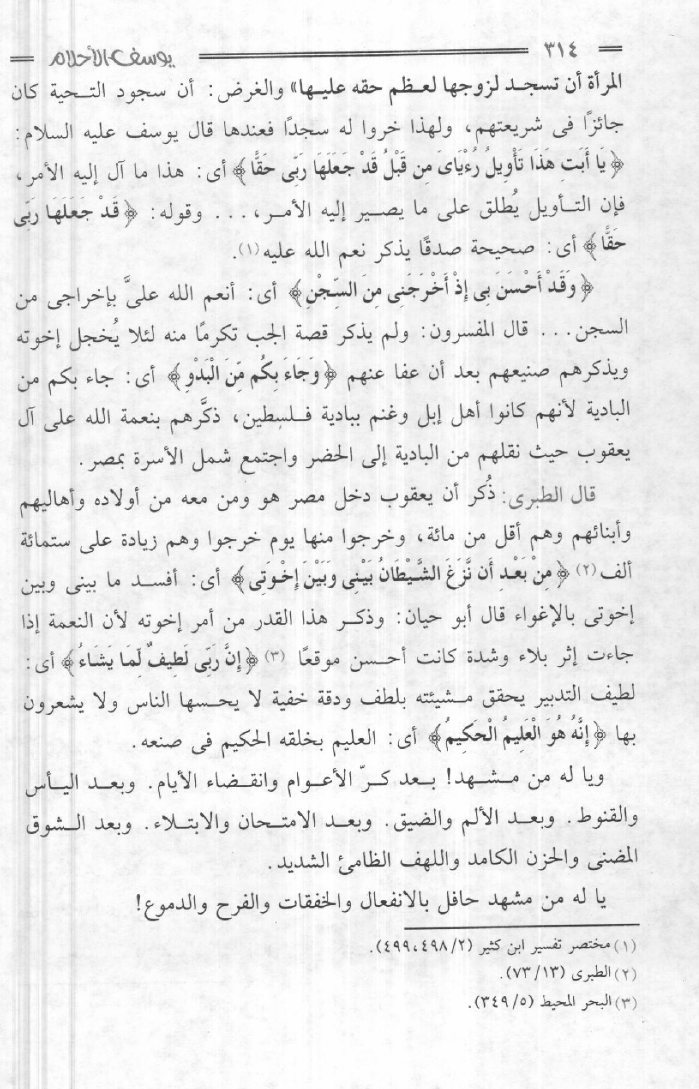 ٣١٤ يوسف الأحلام
المرأة أن تسجد لزوجها لعظم حقه عليها» والغرض: أن سجود التحية كان
جائزًا فى شريعتهم، ولهذا خروا له سجدًا فعندها قال يوسف عليه السلام:
﴿يَا أَبَتِ هَذَا تَأْوِيلُ رُءْيَاىَ مِن قَبْلُ قَدْ جَعَلَهَا رَبِّى حَقًّا﴾ أى: هذا ما آل إليه الأمر،
فإن التأويل يُطلق على ما يصير إليه الأمر،... وقوله: ﴿قَدْ جَعَلَهَا رَبِّى
حَقًّا﴾ أى: صحيحة صدقًا يذكر نعم الله عليه(١).
﴿وَقَدْ أَحْسَنَ بِى إِذْ أَخْرَجَنِى مِنَ السِّجْنِ﴾ أى: أنعم الله علىَّ بإخراجى من
السجن... قال المفسرون: ولم يذكر قصة الجب تكرمًا منه لئلا يُخجل إخوته
ويذكرهم صنيعهم بعد أن عفا عنهم ﴿وَجَاءَ بِكُم مِّنَ الْبَدْوِ﴾ أى: جاء بكم من
البادية لأنهم كانوا أهل إبل وغنم ببادية فلسطين، ذكَّرهم بنعمة الله على آل
يعقوب حيث نقلهم من البادية إلى الحضر واجتمع شمل الأسرة بمصر.
قال الطبرى: ذُكر أن يعقوب دخل مصر هو ومن معه من أولاده وأهاليهم
وأبنائهم وهم أقل من مائة، وخرجوا منها يوم خرجوا وهم زيادة على ستمائة
ألف(٢) ﴿مِنْ بَعْدِ أَن نَّزَغَ الشَّيْطَانُ بَيْنِى وَبَيْنَ إِخْوَتِى﴾ أى: أفسد ما بينى وبين
إخوتى بالإغواء قال أبو حيان: وذكر هذا القدر من أمر إخوته لأن النعمة إذا
جاءت إثر بلاء وشدة كانت أحسن موقعًا (٣) ﴿إِنَّ رَبِّى لَطِيفٌ لِّمَا يَشَاءُ﴾ أى:
لطيف التدبير يحقق مشيئته بلطف ودقة خفية لا يحسها الناس ولا يشعرون
بها ﴿إِنَّهُ هُوَ الْعَلِيمُ الْحَكِيمُ﴾ أى: العليم بخلقه الحكيم فى صنعه.
ويا له من مشهد! بعد كرّ الأعوام وانقضاء الأيام. وبعد اليأس
والقنوط. وبعد الألم والضيق. وبعد الامتحان والابتلاء. وبعد الشوق
المضنى والحزن الكامد واللهف الظامئ الشديد.
يا له من مشهد حافل بالانفعال والخفقات والفرح والدموع!
(١) مختصر تفسير ابن كثير (٢/ ٤٩٨، ٤٩٩).
(٢) الطبرى (١٣/ ٧٣).
(٣) البحر المحيط (٥/ ٣٤٩).